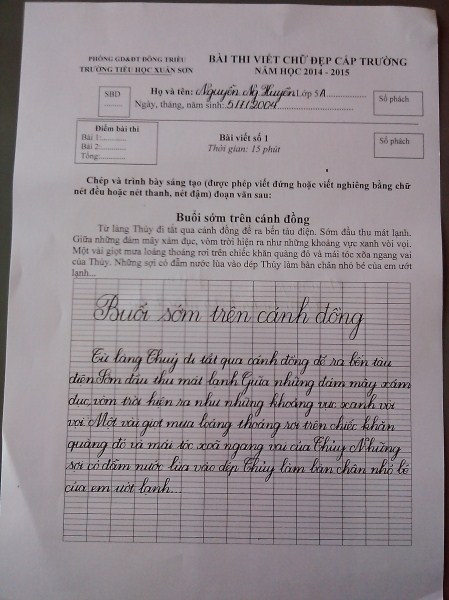 PHÒNG GD&ĐT ĐÔNG TRIỀU
TRƯỜNG TIỂU HỌC XUÂN SƠN
BÀI THI VIẾT CHỮ ĐẸP CẤP TRƯỜNG
NĂM HỌC 2014 - 2015
SBD
Họ và tên: Nguyễn Ng Huyền Lớp 5A
Ngày, tháng, năm sinh: 5/1/2004
Số phách
Điểm bài thi
Bài 1:
Bài 2:
Tổng:
Bài viết số 1
Thời gian: 15 phút
Số phách
Chép và trình bày sáng tạo (được phép viết đứng hoặc viết nghiêng bằng chữ
nét đều hoặc nét thanh, nét đậm) đoạn văn sau:
Buổi sớm trên cánh đồng
Từ làng Thủy đi tắt qua cánh đồng để ra bến tàu điện. Sớm đầu thu mát lạnh.
Giữa những đám mây xám đục, vòm trời hiện ra như những khoảng vực xanh vòi vọi.
Một vài giọt mưa loáng thoáng rơi trên chiếc khăn quàng đỏ và mái tóc xõa ngang vai
của Thủy. Những sợi cỏ đẫm nước lùa vào dép Thủy làm bàn chân nhỏ bé của em ướt
lạnh...
Buổi sớm trên cánh đồng
Từ làng Thuỷ đi tắt qua cánh đồng để ra bến tàu
điện. Sớm đầu thu mát lạnh. Giữa những đám mây xám
đục, vòm trời hiện ra như những khoảng vực xanh vòi
vọi. Một vài giọt mưa loáng thoáng rơi trên chiếc khăn
quàng đỏ và mái tóc xoã ngang vai của Thủy. Những
sợi cỏ đẫm nước lùa vào dép Thủy làm bàn chân nhỏ bé
của em ướt lạnh...